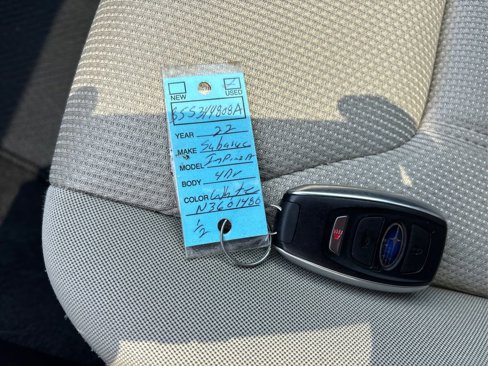 NEW USED
YEAR 22
MAKE Subaru
MODEL Impreza
BODY 4Dr
COLOR White
N3601480
1/2